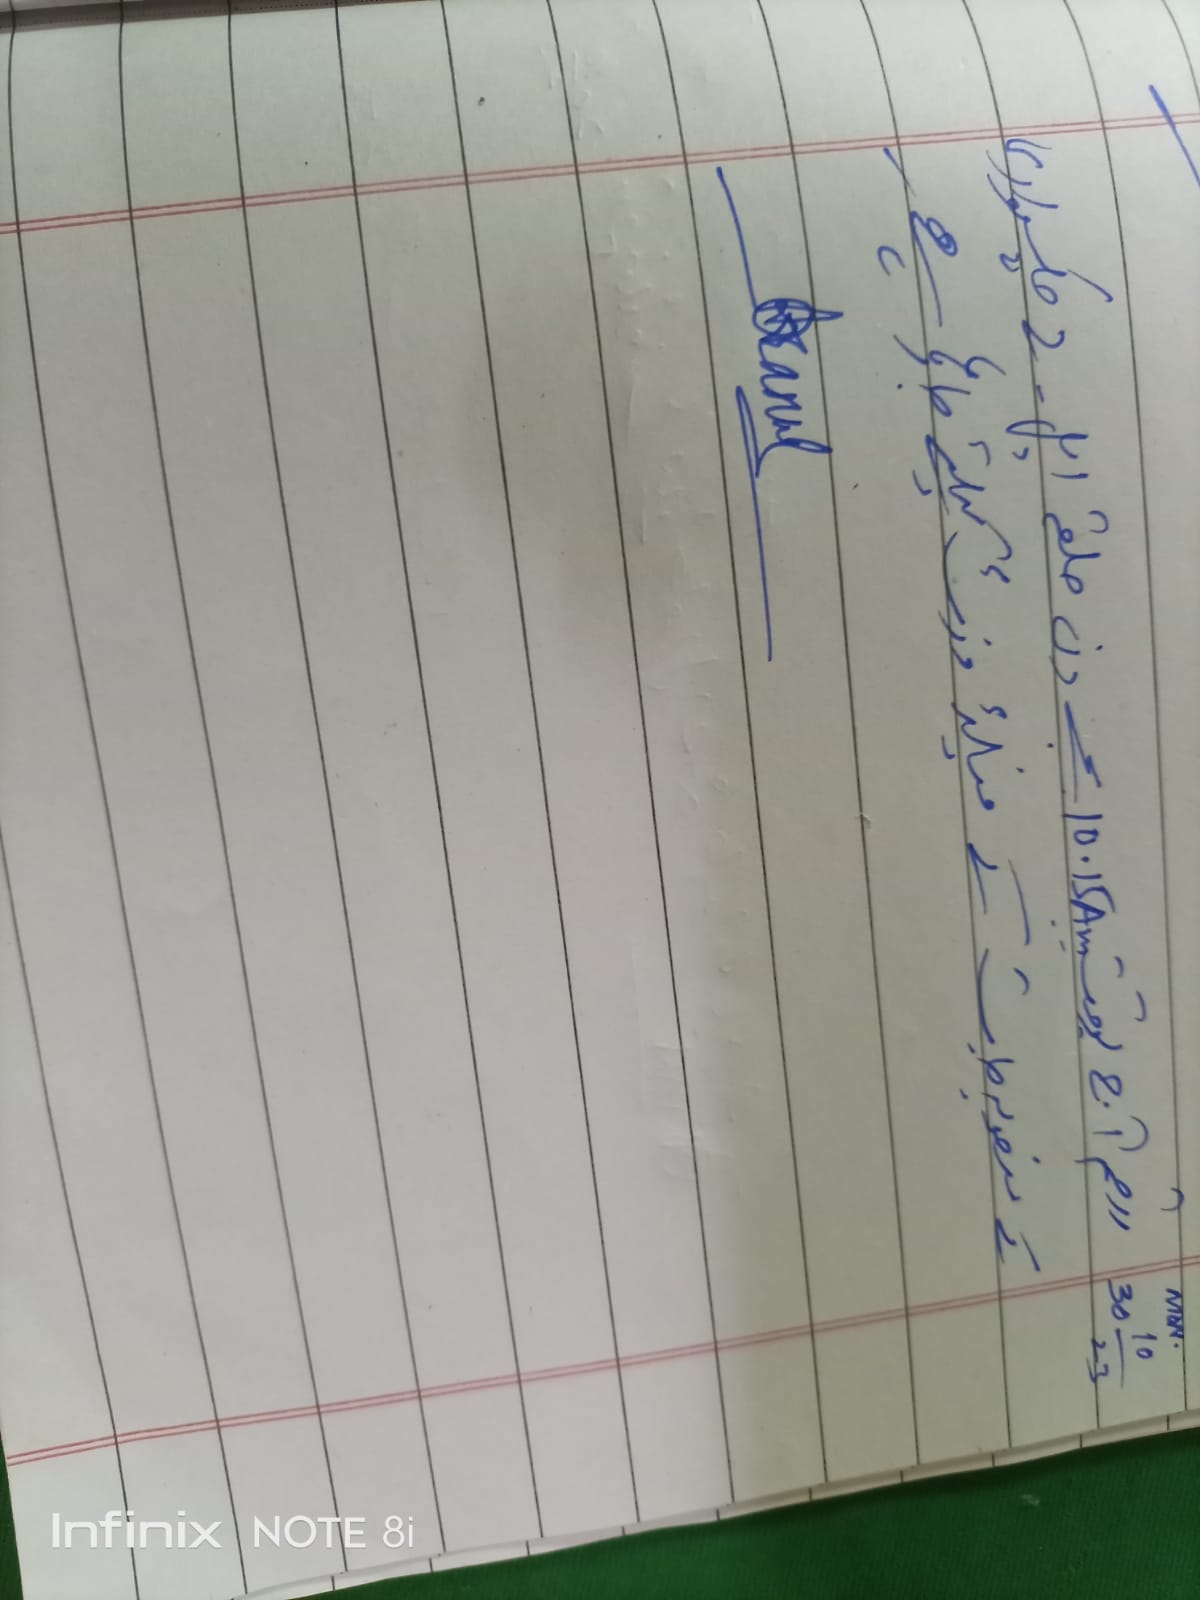 MON.
30 10/23
راقم آج بوقت 10.15Am بجے دن حلقہ ایل-2 چکسواری
کے منصوبہ جات کے فیلڈ وزٹ کیلئے جا رہا ہے
Infinix NOTE 8i